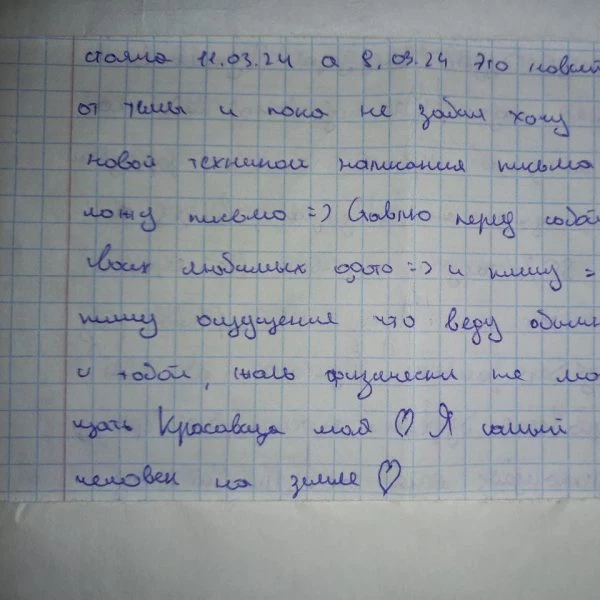 стояла 11.03.24 а 8.03.24 это новый
от темы и пока не забыл хочу
новой техникой написания письма
ложу письмо =) Ставлю перед собой
твоих любимых фото =) и пишу =
пишу ощущение что веду
и тобой, жаль физически не мо
щать Красавица моя ♡ Я самый
человек на земле ♡